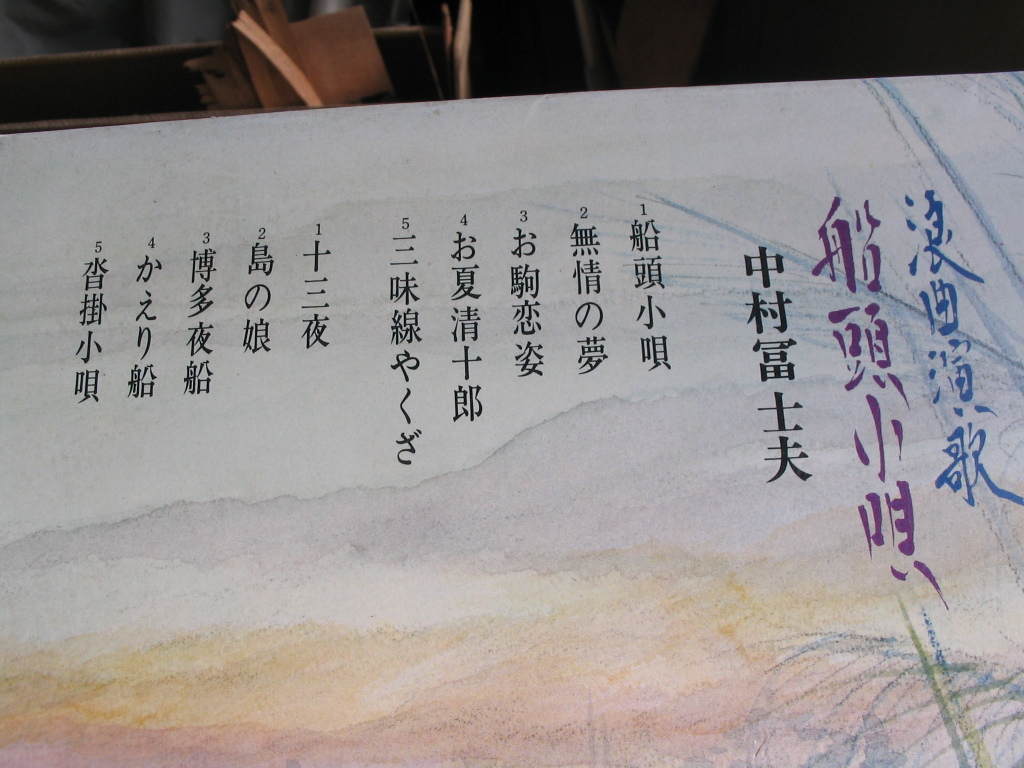 浪曲演歌
船頭小唄
中村冨士夫
1 船頭小唄
2 無情の夢
3 お駒恋姿
4 お夏清十郎
5 三味線やくざ
1 十三夜
2 島の娘
3 博多夜船
4 かえり船
5 沓掛小唄